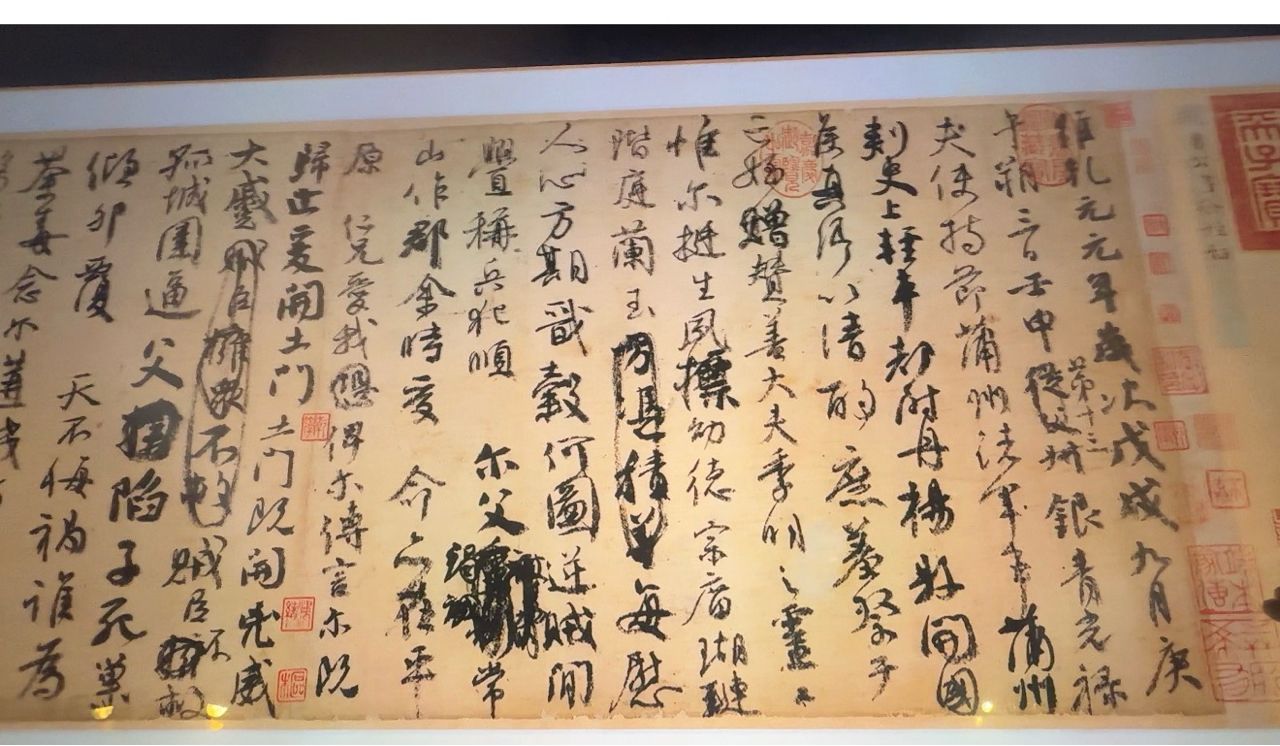 維乾元元年歲次戊戌九月庚
午朔三日壬申第十三從父銀青光祿
夫使持節蒲州諸軍事蒲州
刺史上輕車都尉丹楊縣開國
侯真卿以清酌庶羞祭于
亡姪贈贊善大夫季明之靈曰
惟爾挺生夙標幼德宗廟瑚璉
階庭蘭玉方憑積善每慰
人心方期戩穀何圖逆賊閒
釁稱兵犯順爾父竭誠常
山作郡余時受命亦在平
原仁兄愛我恐俾爾傳言爾既
歸止爰開土門土門既開凶威
大蹙賊臣擁眾不救賊臣不救
孤城圍逼父陷子死巢
傾卵覆天不悔禍誰為
荼毒念爾遘殘